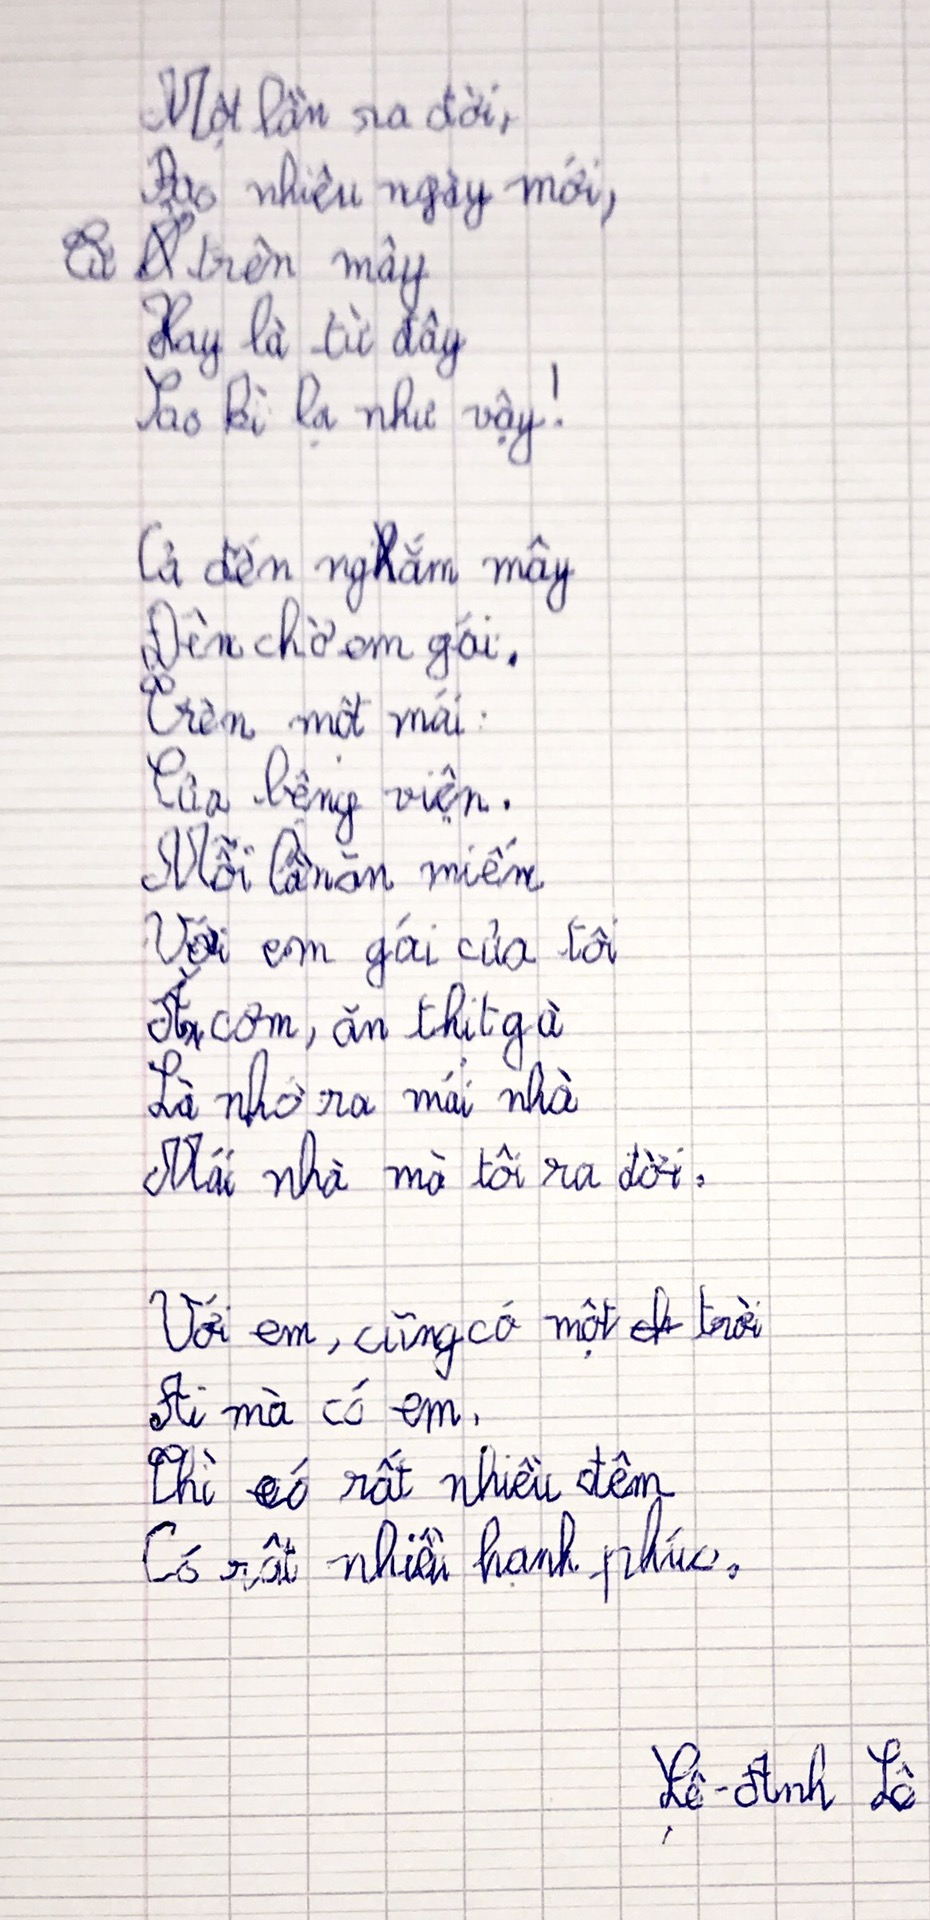 Một lần ra đời,
Bao nhiêu ngày mới,
Từ trên mây
Hay là từ đây
Sao kì lạ như vậy!
Cả đến ngắm mây
Đến chờ em gái.
Trên một mái
Của bệng viện.
Mỗi lần ăn miến
Với em gái của tôi
Ăn cơm, ăn thịt gà
Là nhớ ra mái nhà
Mái nhà mà tôi ra đời.
Với em, cũng có một trời
Ai mà có em,
Thì có rất nhiều đêm
Có rất nhiều hạnh phúc.
Lê-Anh